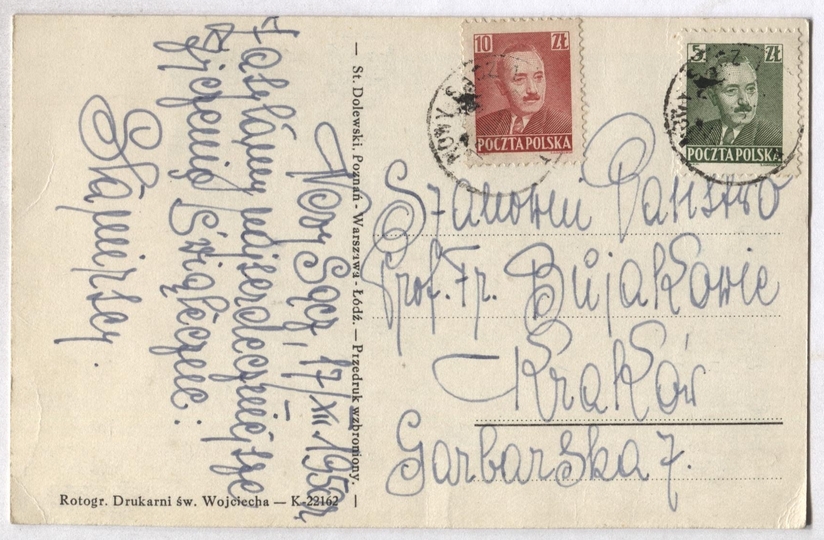 Nowy Sącz, 17/XII.1950r
Załączamy najserdeczniejsze
życzenia Świąteczne.
St. Dolewski, Poznań - Warszawa - Łódź. — Przedruk wzbroniony.
Rotogr. Drukarni św. Wojciecha — K-22162
10 ZŁ
POCZTA POLSKA
5 ZŁ
POCZTA POLSKA
NOWY SĄCZ
Szanowni Państwo
Prof. Fr. Bujakowie
Kraków
Garbarska 7.